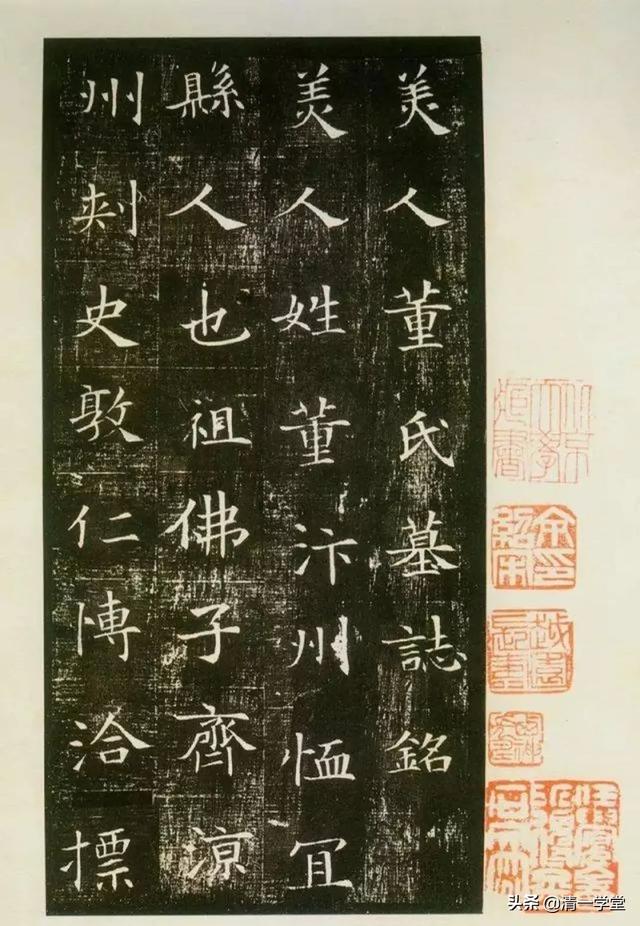 美人董氏墓誌銘
美人姓董汴州恤冝
縣人也祖佛子齊涼
州刾史敦仁愽洽摽
余印紹宋
头条 @清一学堂